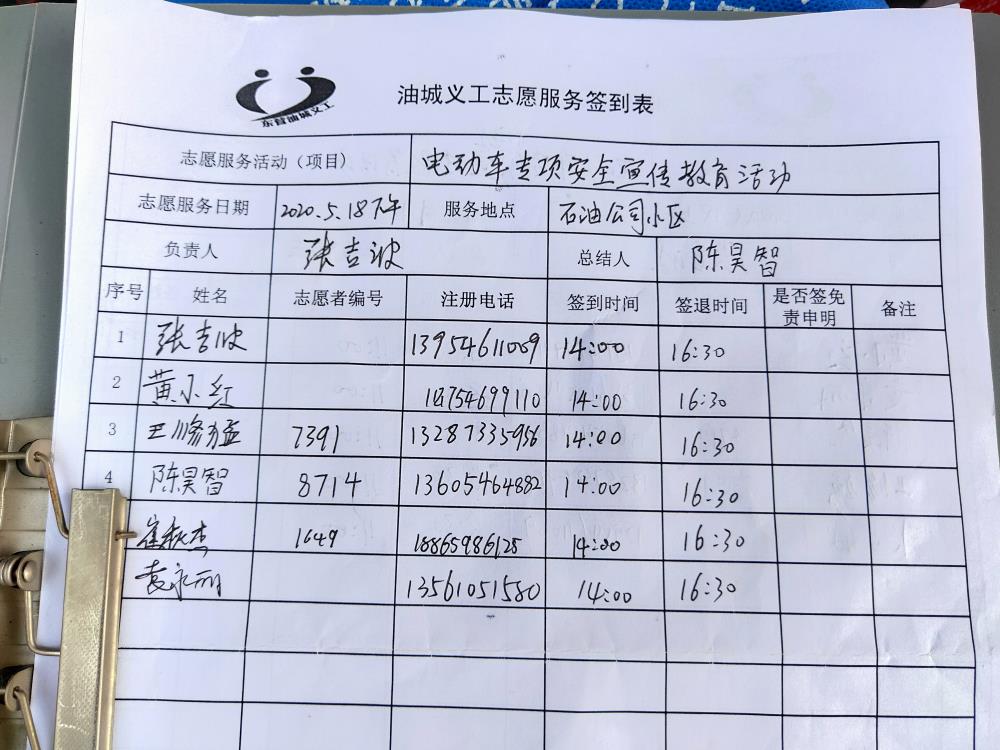 东营油城义工
油城义工志愿服务签到表
志愿服务活动（项目） 电动车专项安全宣传教育活动
志愿服务日期 2020.5.18下午 服务地点 石油公司小区
负责人 张吉波 总结人 陈昊智
序号 姓名 志愿者编号 注册电话 签到时间 签退时间 是否签免责申明 备注
1 张吉波 13954611009 14:00 16:30
2 黄小红 14:00 16:30
3 王 7391 13287335956 14:00 16:30
4 陈昊智 8714 13605464882 14:00 16:30
崔秋杰 1649 18865986125 14:00 16:30
袁永丽 13561051580 14:00 16:30